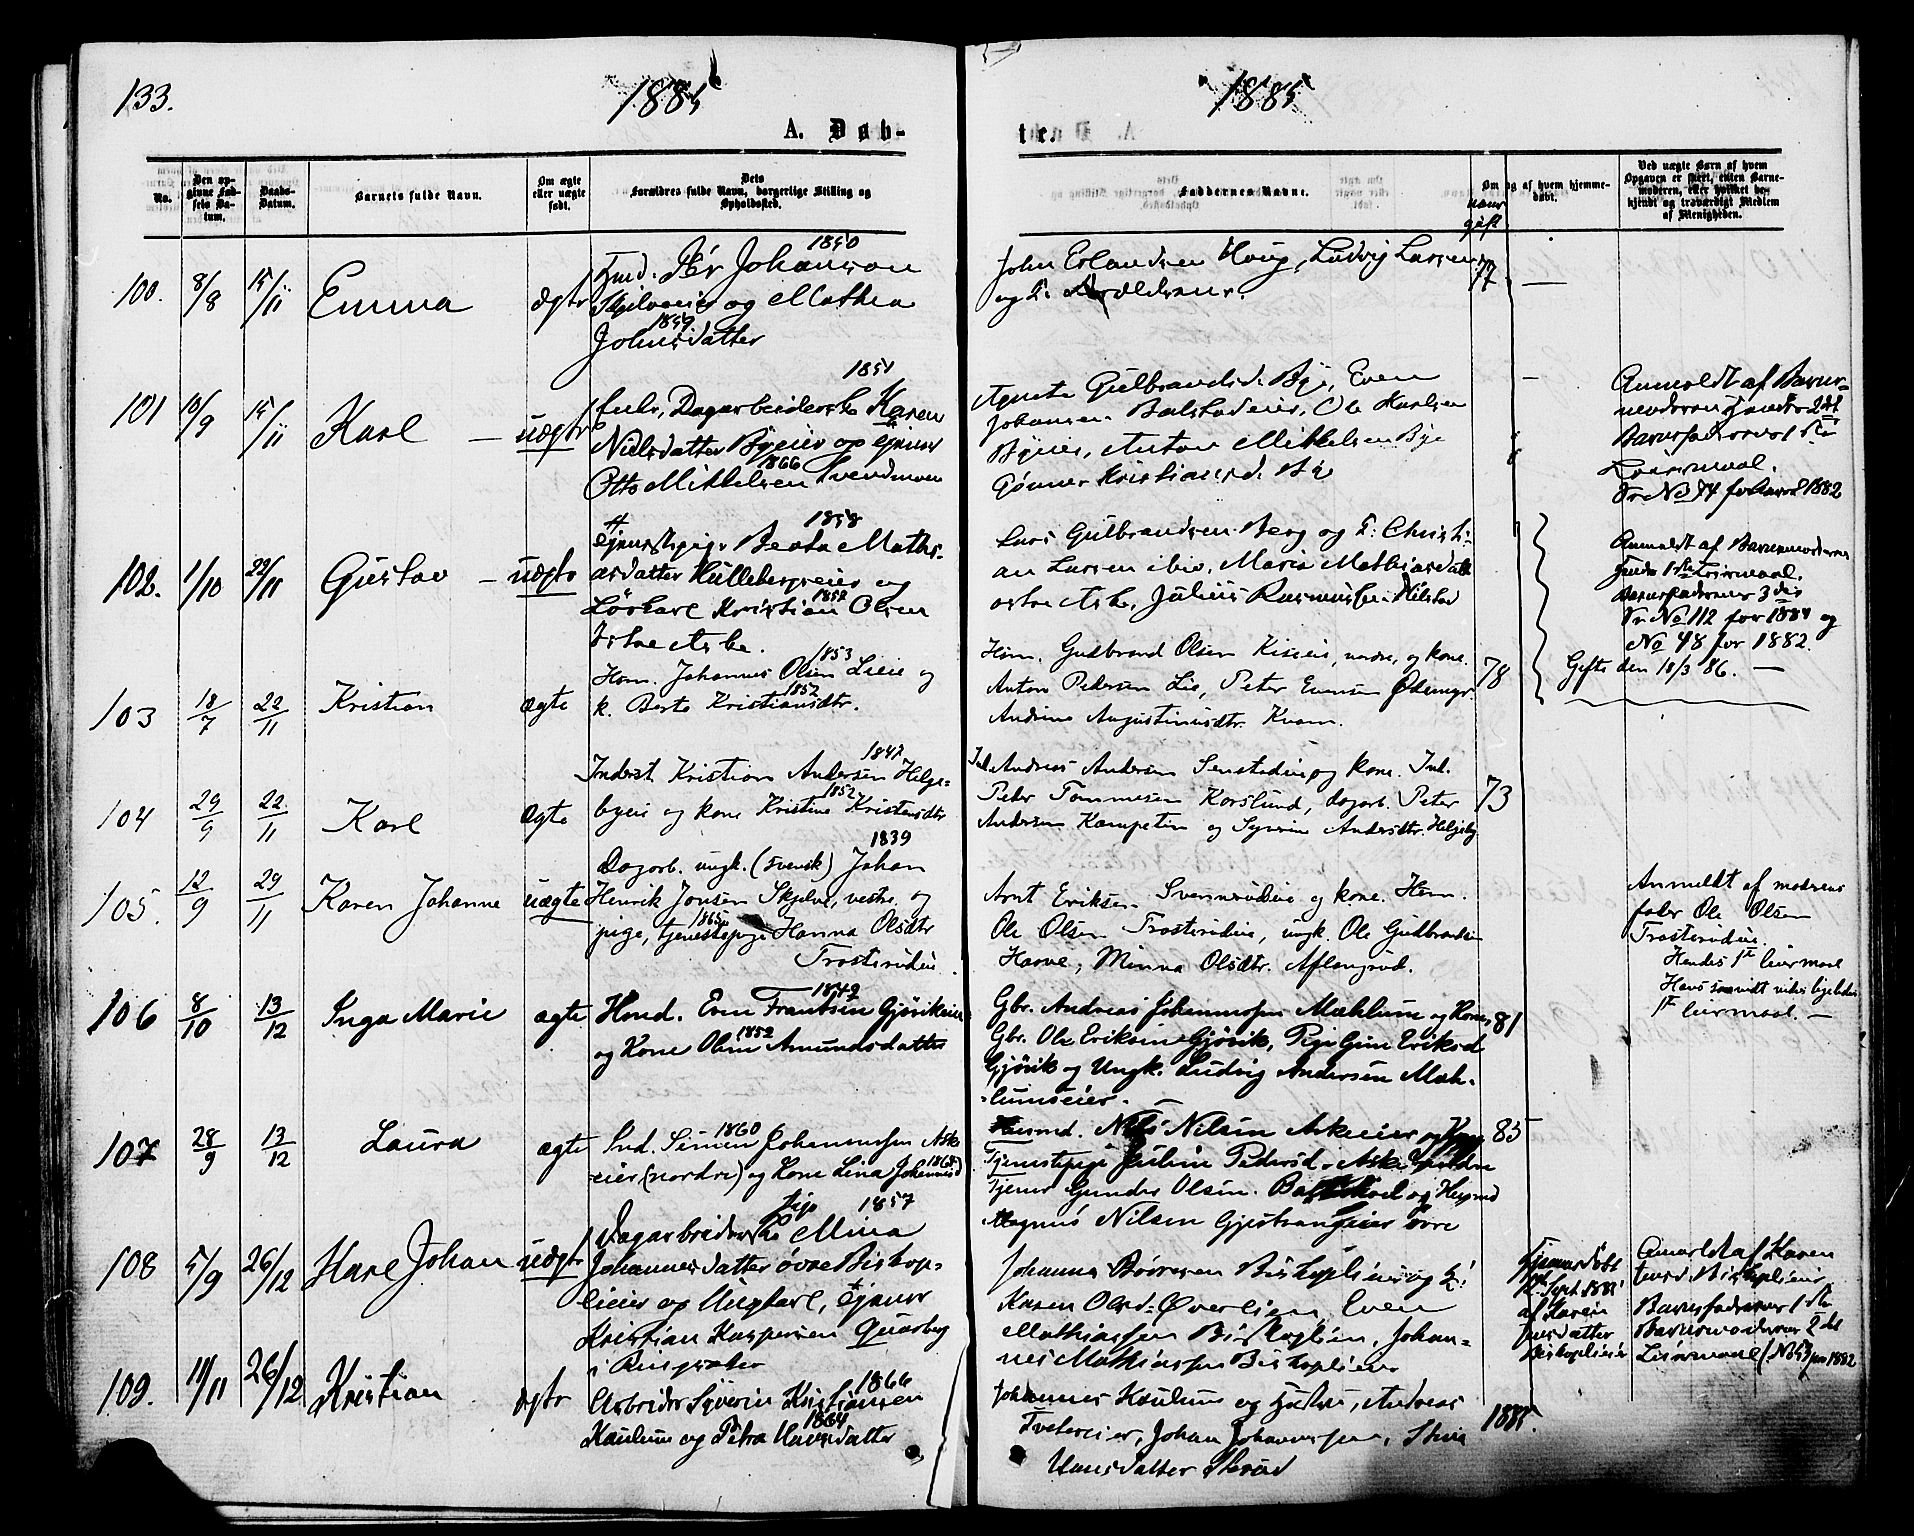 133.
1885
1885
A. Døb-
te.
No.
Den op-
givne Fød-
sels Da-
tum.
Daabs-
Datum.
Barnets fulde Navn.
Om ægte
eller uægte
født.
Dets
Forældres fulde Navn, borgerlige Stilling og
Opholdssted.
Faddernes Navne.
naar
gift
Om og af hvem hjemme-
døbt.
Ved uægte Børn af hvem
Opgaven er skeet, enten Barne-
moderen, eller hvilket be-
kjendt og troværdigt Medlem
af Menigheden.
100. 8/8 15/11 Emma ægte
1850
Pér Johanson
og Mathea
1859
Johnsdatter
John Erlandsen Houg, Ludvig Larsen
77
101 10/9 15/11 Karl – uægte
1851
Dagarbeiderske Karen
Nielsdatter Byeier og tjener
1866
Otto Mikkelsen Svendmoen
Agnete Gulbrandsd. Bye, Even
Johansen Balstadeier, Ole Karlsen
Byeier, Anton Mikkelsen Bye
Kristiansd. Bye
Anmeldt af Barne-
moderen 2det
Barnefaderens 1ste
Leiermaal.
Fr. No 74 for 1882
102. 1/10 22/11 Gustav – uægte
1858
Tjenestepige Beate Mathi-
asdatter Hullebergeier og
1859
Løskarl Kristian Olsen
Østre Aske.
Lars Gulbrandsen Berg og K. Christi-
an Larsen ibid, Maria Mathiasdatt
østre Aske, Julius Rasmussen Hilstad
Anmeldt af Barnemoderen
1ste Leiermaal.
Barnefaderens 3die
Fr. No 112 for 1884 og
No 48 for 1882.
Gifte den 18/3 86. —
103 18/7 22/11 Kristian ægte
1853
Hsm. Johannes Olsen Lieie og
1852
k. Berte Kristiansdtr.
Hsm. Gudbrand Olsen Kiseie, nedre, og kone.
Anton Pedersen Lie, Peter Evensen
Andrine Augustinusdtr. Kvam.
78
104 29/9 22/11 Karl ægte
1847
Inderst Kristian Andersen Helge-
1852
byeie og kone Kristine Kristensdtr
Ind. Andreas Andersen Senstadeie og kone. Ind.
Peter Tommesen Korslund, dagarb. Peter
Andersen Kampetin og Syverine Andersdtr. Helgeby.
73
105. 12/9 29/11 Karen Johanne uægte
1839
Dagarb. ungk. (svensk) Johan
Henrik Jonsen Skjelve, vestre, og
1865
pige, tjenestepige Hanna Olsdtr
Trosterudeie.
Arnt Eriksen Svennerudeie og kone. Hsm.
Ole Olsen Trosterudeie, ungk. Ole Gudbrandsen
Horne, Minna Olsdtr. Aflangrud.
Anmeldt af moderens
fader Ole Olsen
Trosterudeie.
Hendes 1ste leiermaal
Hans saavidt vides ligeledes
1ste leiermaal. —
106 8/10 13/12 Inga Marie ægte
1849
Husmd. Even Frantsen Gjøvikeier
1852
og Kone Oline Amundsdatter
Gbr. Andreas Johannessen Mæhlum og Kone,
Gbr. Ole Eriksen Gjøvik, Pige Gine Eriksd
Gjøvik og Ungk. Ludvig Andersen Mæh-
lumseier.
81
107 28/9 13/12 Laura ægte
1860
Ind. Simen Johannessen Aske-
eier (nordre) og Kone Lina Johannesd
Husmd. Nils Nilsen Askeeier og Kone
Tjenestepige Juline Pedersd. Aske
Tjener Gunder Olsen og Husmd
Magnus Nilsen Gjestvangeier øvre
85
108 5/9 26/12 Karl Johan uægte
Pige 1857
Dagarbeiderske Mina
Johannesdatter øvre Biskop-
lieier og Ungkarl, tjener
Kristian Kaspersen Quarberg
i Ringsaker
Johannes Børresen Biskoplieier og K.
Karen Olsd. Øverlien, Even
Mathiassen Biskoplien, Johan-
nes Mathiassen Biskoplieier
Hjemmedøbt
12. Sept. 1885
af Karen
Jensdatter
Biskoplieier
Anmeldt af Karen
Jensd Biskoplieier
Barnefaderens 1ste
Barnemoderens 2det
Leiermaal (No 53 for 1882
109. 11/11 26/12 Kristian ægte
1866
Arbeider Syverin Kristiansen
1864
Kaulum og Petra Hansdatter
Johannes Kaulum og Hustru, Andreas
Tvetereier, Johan Johannessen, Stina
Hansdatter Skrød
1885.